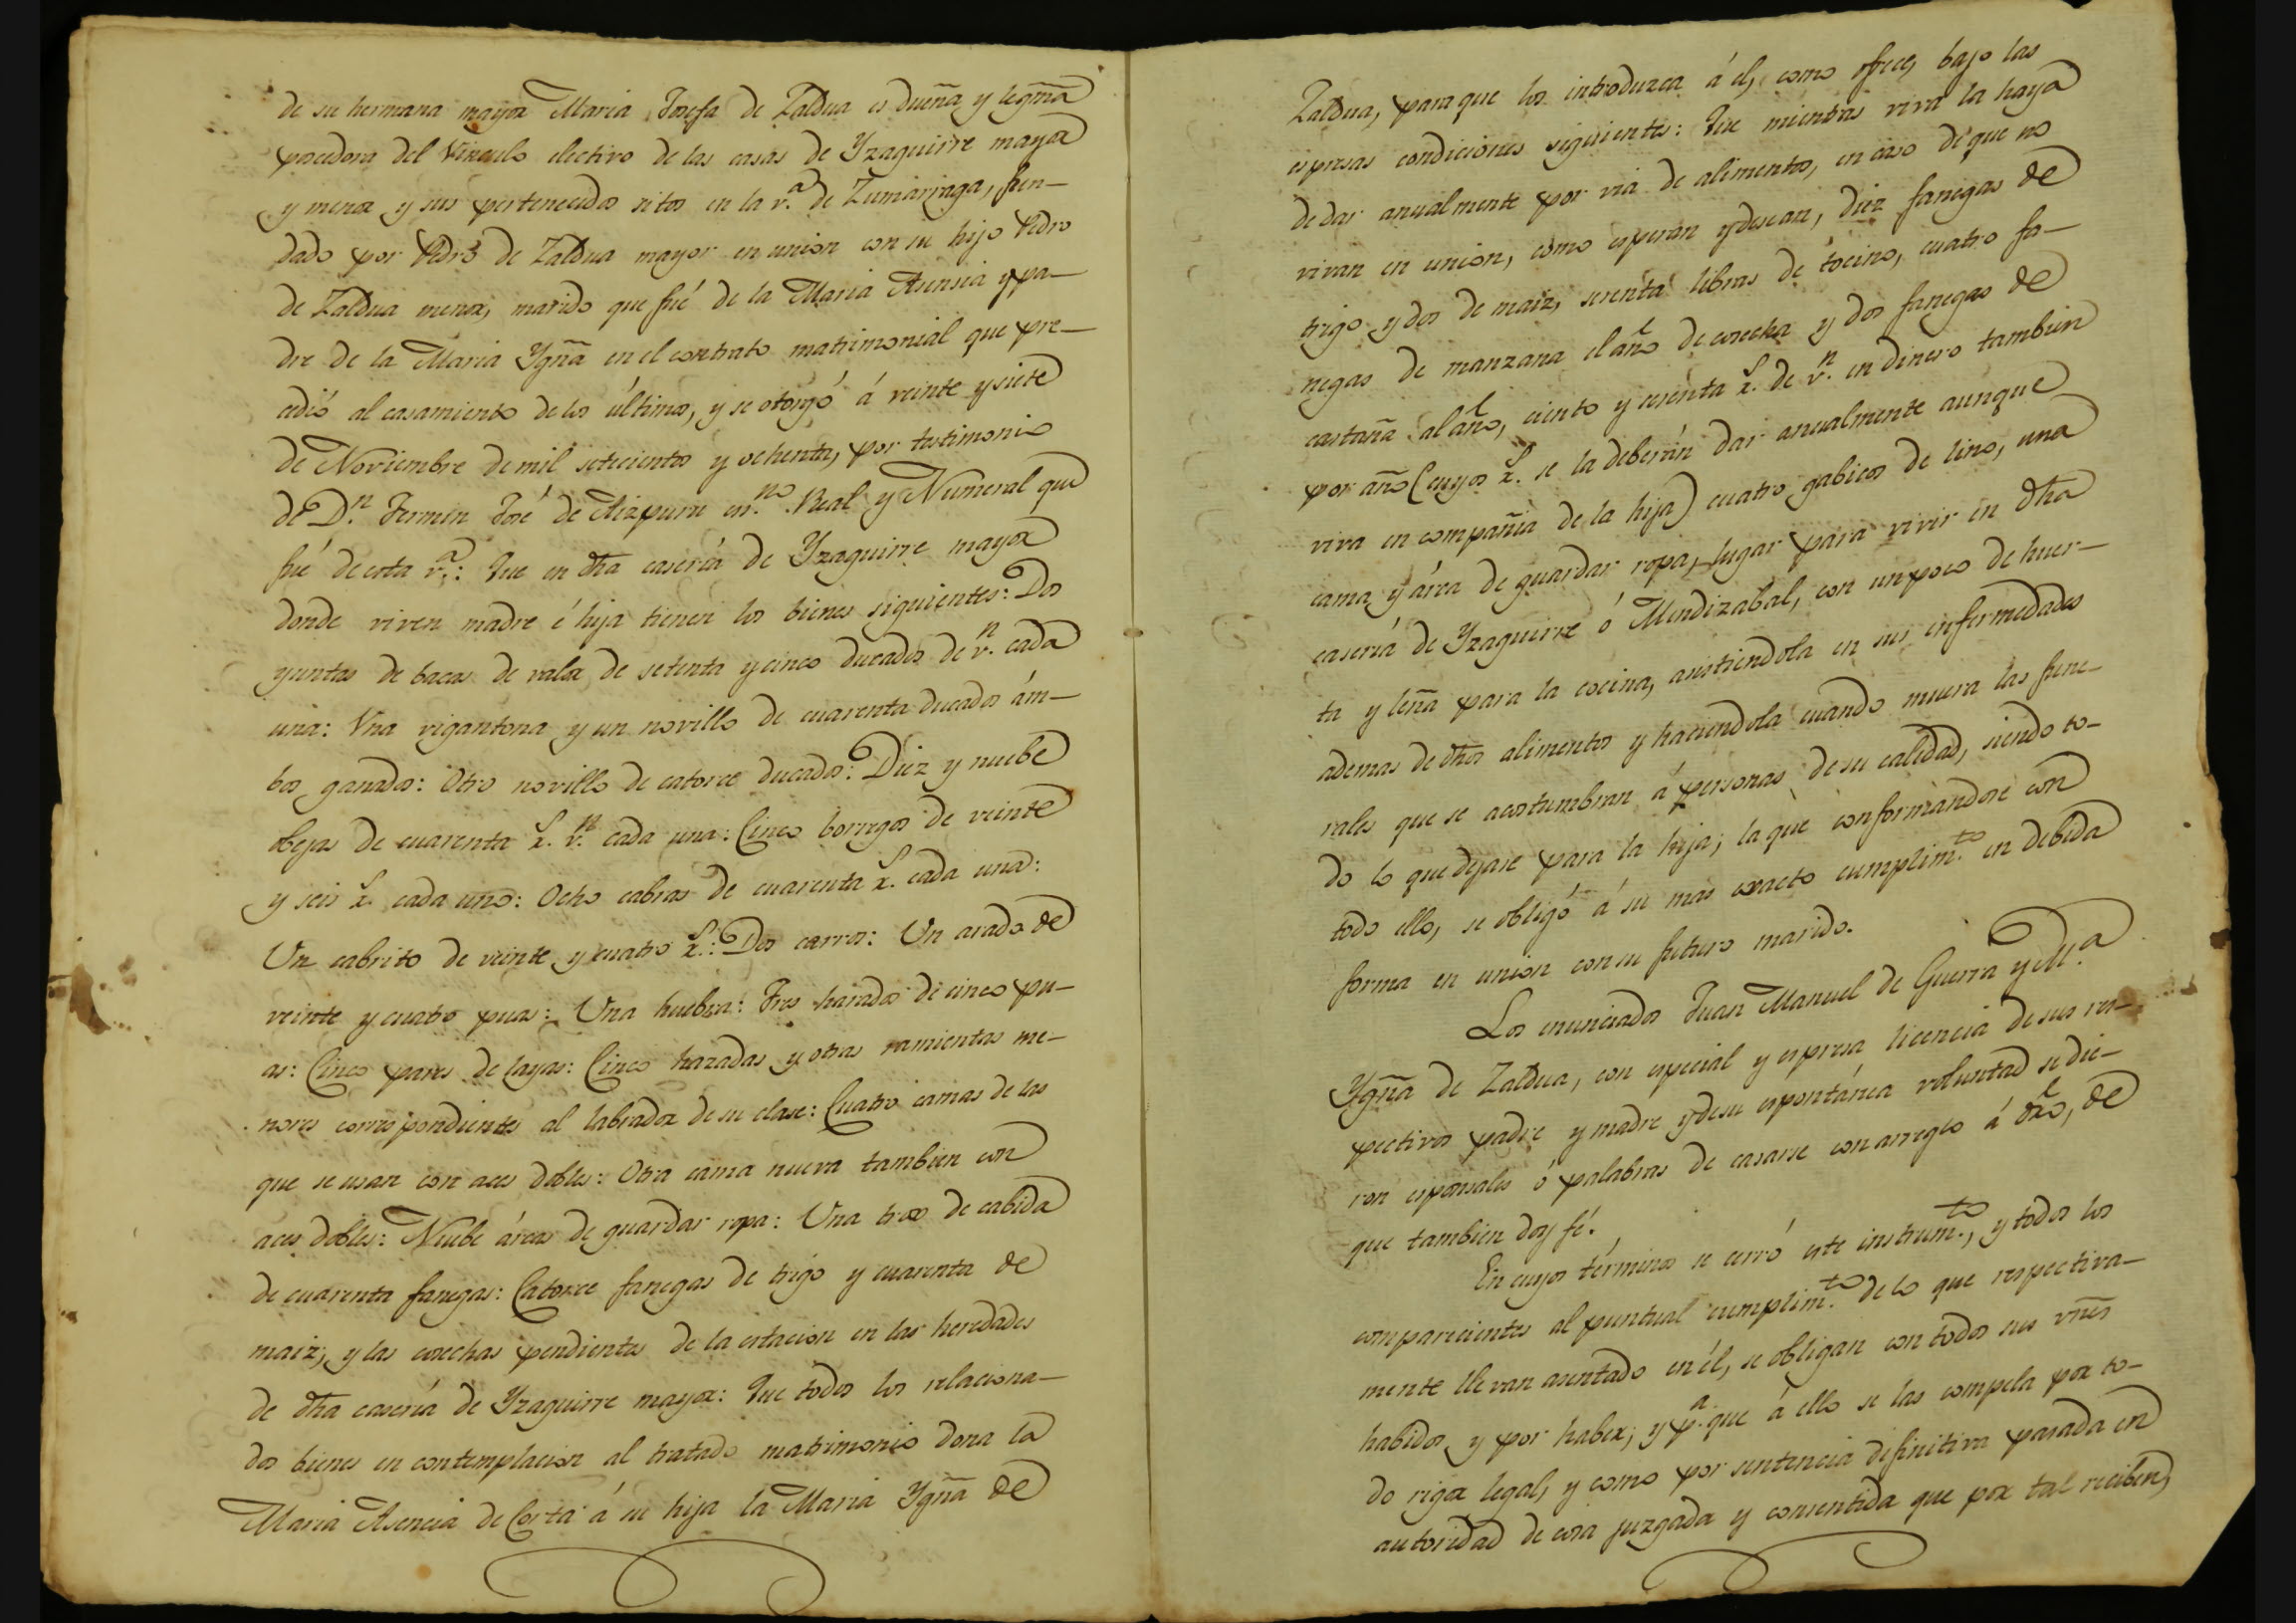 de su hermana mayor Maria Josefa de Zaldua es dueña y legma
pocedora del Vinculo electivo de las casas de Yzaguirre mayor
y menor y sus pertenecidos sitos en la v.a de Zumarraga, fun-
dado por Pedro de Zaldua mayor en union con su hijo Pedro
de Zaldua menor, marido que fué de la Maria Asensia y pa-
dre de la Maria Ygña en el contrato matrimonial que pre-
cedió al casamiento de los últimos, y se otorgó á veinte y siete
de Noviembre de mil setecientos y ochenta, por testimonio
de D.n Fermin José de Aizpuru es.no Real y Numeral que
fué de esta v.a: Que en dha casería de Yzaguirre mayor
donde viven madre é hija tienen los bienes siguientes: Dos
yuntas de bacas de valor de setenta y cinco ducados de v.n cada
una: Una vigantona y un novillo de cuarenta ducados ám-
bos ganados: Otro novillo de catorce ducados: Diez y nuebe
obejas de cuarenta r.s v.n cada una: Cinco borregos de veinte
y seis r.s cada uno: Ocho cabras de cuarenta r.s cada una:
Un cabrito de veinte y cuatro r.s: Dos carros: Un arado de
veinte y cuatro puas: Una huebra: Tres harados de cinco pu-
as: Cinco pares de layas: Cinco hazadas y otras ramientas me-
nores correspondientes al labrador de su clase: Cuatro camas de las
que se usan con aces dobles: Otra cama nueva tambien con
aces dobles: Nuebe árcas de guardar ropa: Una trox de cabida
de cuarenta fanegas: Catorce fanegas de trigo y cuarenta de
maiz; y las cosechas pendientes de la estacion en las heredades
de dha casería de Yzaguirre mayor: Que todos los relaciona-
dos bienes en contemplacion al tratado matrimonio dona la
Maria Asencia de Corta á su hija la Maria Ygña de
Zaldua, para que los introduzca á él, como ofrece, bajo las
espresas condiciones siguientes: Que mientras viva la haya
de dar anualmente por via de alimentos, en caso de que no
vivan en union, como esperan y desean, diez fanegas de
trigo y dos de maiz, sesenta libras de tocino, cuatro fa-
negas de manzana el año de cosecha y dos fanegas de
castaña al año, ciento y sesenta r.s de v.n en dinero tambien
por año (cuyos r.s se la deberán dar anualmente aunque
viva en compañia de la hija) cuatro gabicos de lino, una
cama y árca de guardar ropa, lugar para vivir en dha
casería de Yzaguirre ó Mendizabal, con un poco de huer-
ta y leña para la cocina, asistiendola en sus enfermedades
ademas de dhos alimentos y haciendola cuando muera las fune-
rales que se acostumbran á personas de su calidad, siendo to-
do lo que dejare para la hija; la que conformandose con
todo ello, se obligó á su mas exacto cumplim.to en debida
forma en union con su futuro marido.
Los enunciados Juan Manuel de Guerra y M.a
Ygña de Zaldua, con especial y espresa licencia de sus res-
pectivos padre y madre y de su espontánea voluntad se die-
ron esponsales ó palabras de casarse con arreglo á dro, de
que tambien doy fé.
En cuyos términos se cerró este instrum.to, y todos los
comparecientes al puntual cumplim.to de lo que respectiva-
mente llevan asentado en él, se obligan con todos sus vnes
habidos y por haber; y p.a que á ello se las compela por to-
do rigor legal, y como por sentencia difinitiva pasada en
autoridad de cosa juzgada y consentida que por tal reciben,